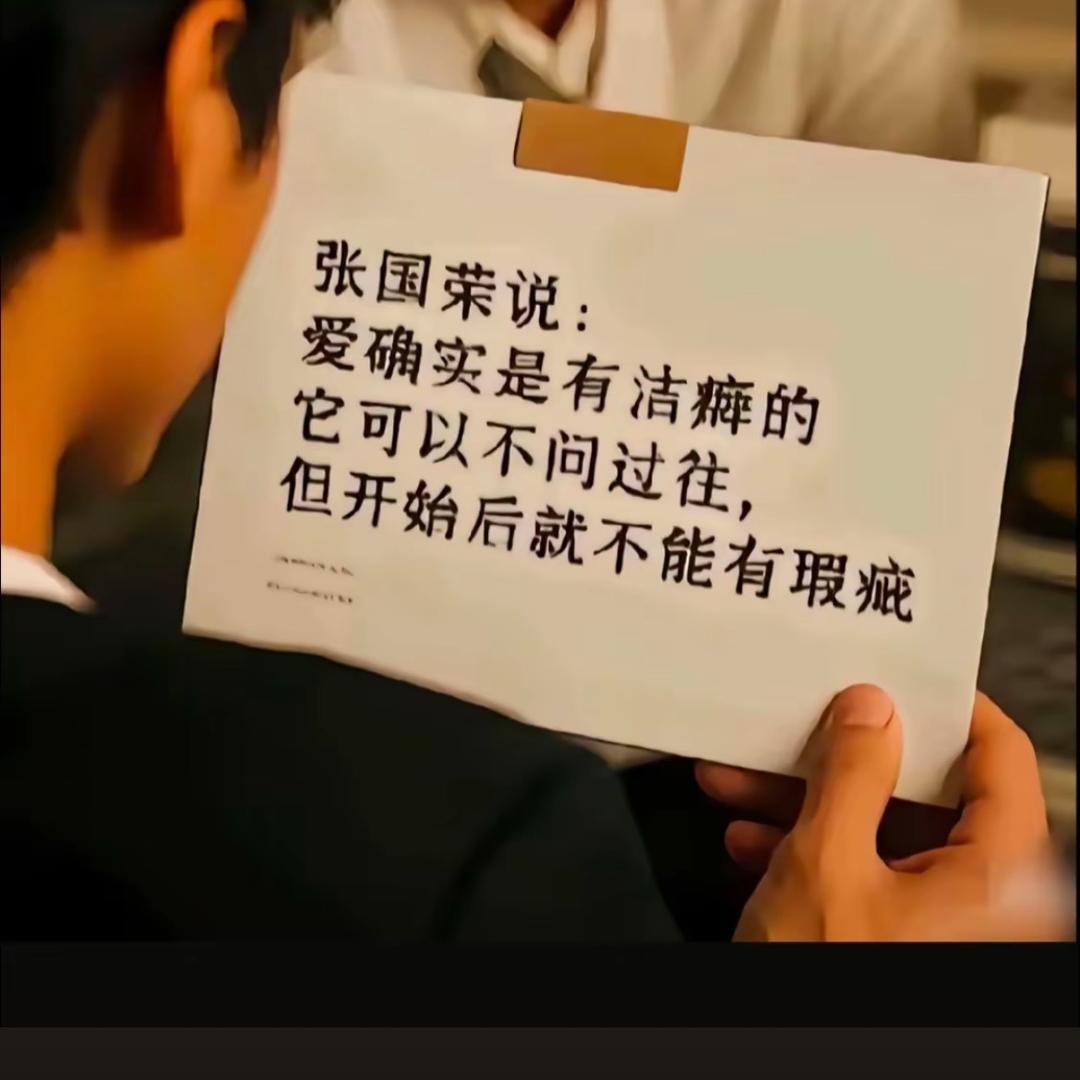 张国荣说：
爱确实是有洁癖的
它可以不问过往，
但开始后就不能有瑕疵